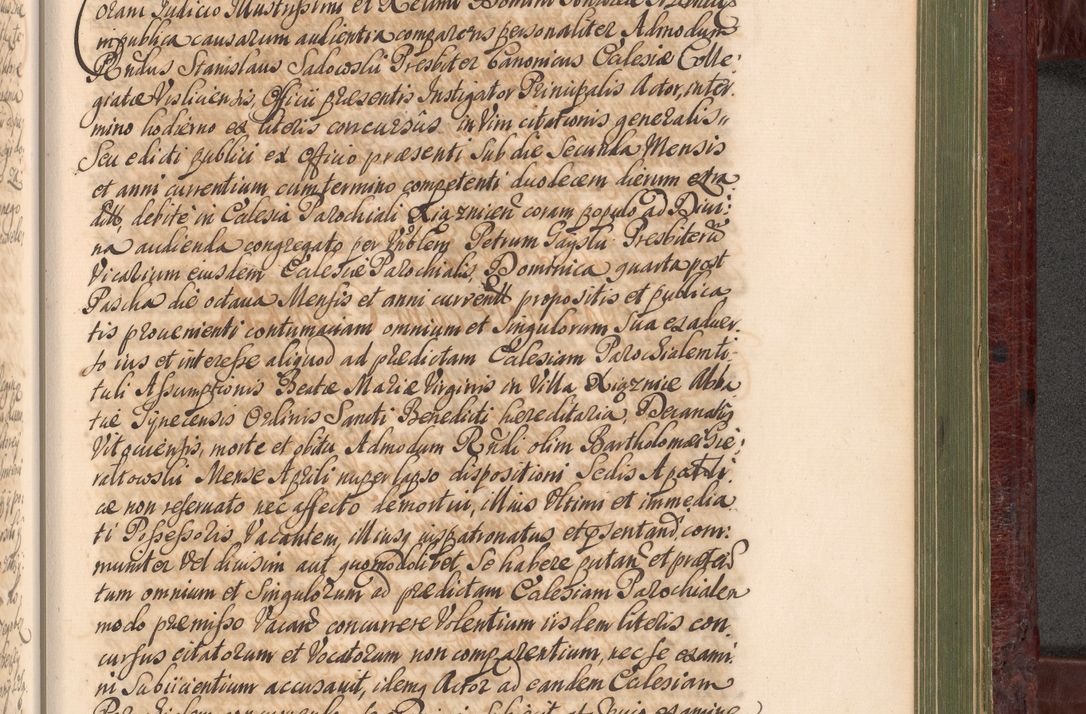 oram Judicio Illustrissimi et Rev̄mi Domini
in publica causarum audientia comparens personaliter Admodum
R̄ndus Stanislaus Sadowski Presbiter Canonicus Ecclesiæ Colle:
giatæ Visliciensis, Officii præsentis Instigator Principalis Actor, inter
mino hodierno ex literis concursûs in vim citationis generalis,
Seu edicti publici ex officio præsenti Sub die Secunda Mensis
et anni currentium cum termino competenti duodecem dierum extra
debitè in Ecclesia Parochiali coram populo ad Divi:
na audienda congregato per Petrum Presbiterū
Vicarium eiusdem Ecclesiæ Parochialis, Dominica quarta post
Pascha die octava Mensis et anni currentt propositis et publica
tis provenienti contumaciam omnium et Singulorum Sua ex adver:
so ius et interesse aliquod ad prædictam Ecclesiam Parochialem ti:
tuli Assumptionis Beatæ Mariæ Virginis in Villa Abba
tiæ Tynecensis Ordinis Sancti Benedicti hereditaria, Decanatûs
morte et obitu Admodum R̄ndi olim Bartholomæi Sie:
rakowski Mense Aprili nuper lapso dispositioni Sedis
æ non reservato nec affecto demortui, illius Ultimi et immedia
ti Possessoris, Vacantem, illiusq̨ iuspatronatus et p̄sentandi com:
muniter Vel divisim aut quomodolibet, Se habere putan̄
tum omnium et Singulorum ad prædictam Ecclesiam Parochialem
modo præmisso Vacan̄ concurrere Volentium iisdem literis con:
cursus citatorum et Vocatorum non comparentium, nec Se exami:
ni Subiicientium accusavit, idemq̨ Actor ad eandem Ecclesiam